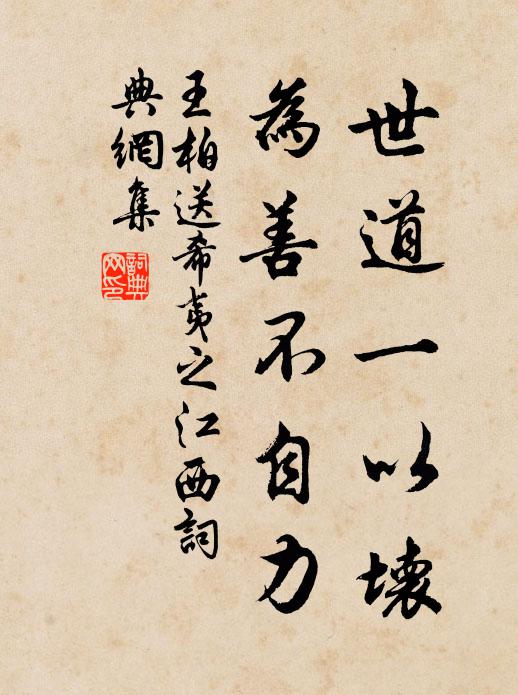 世道一以壞
為善不自力
王柏送希夷之江西詞
典網集
詞典
网印